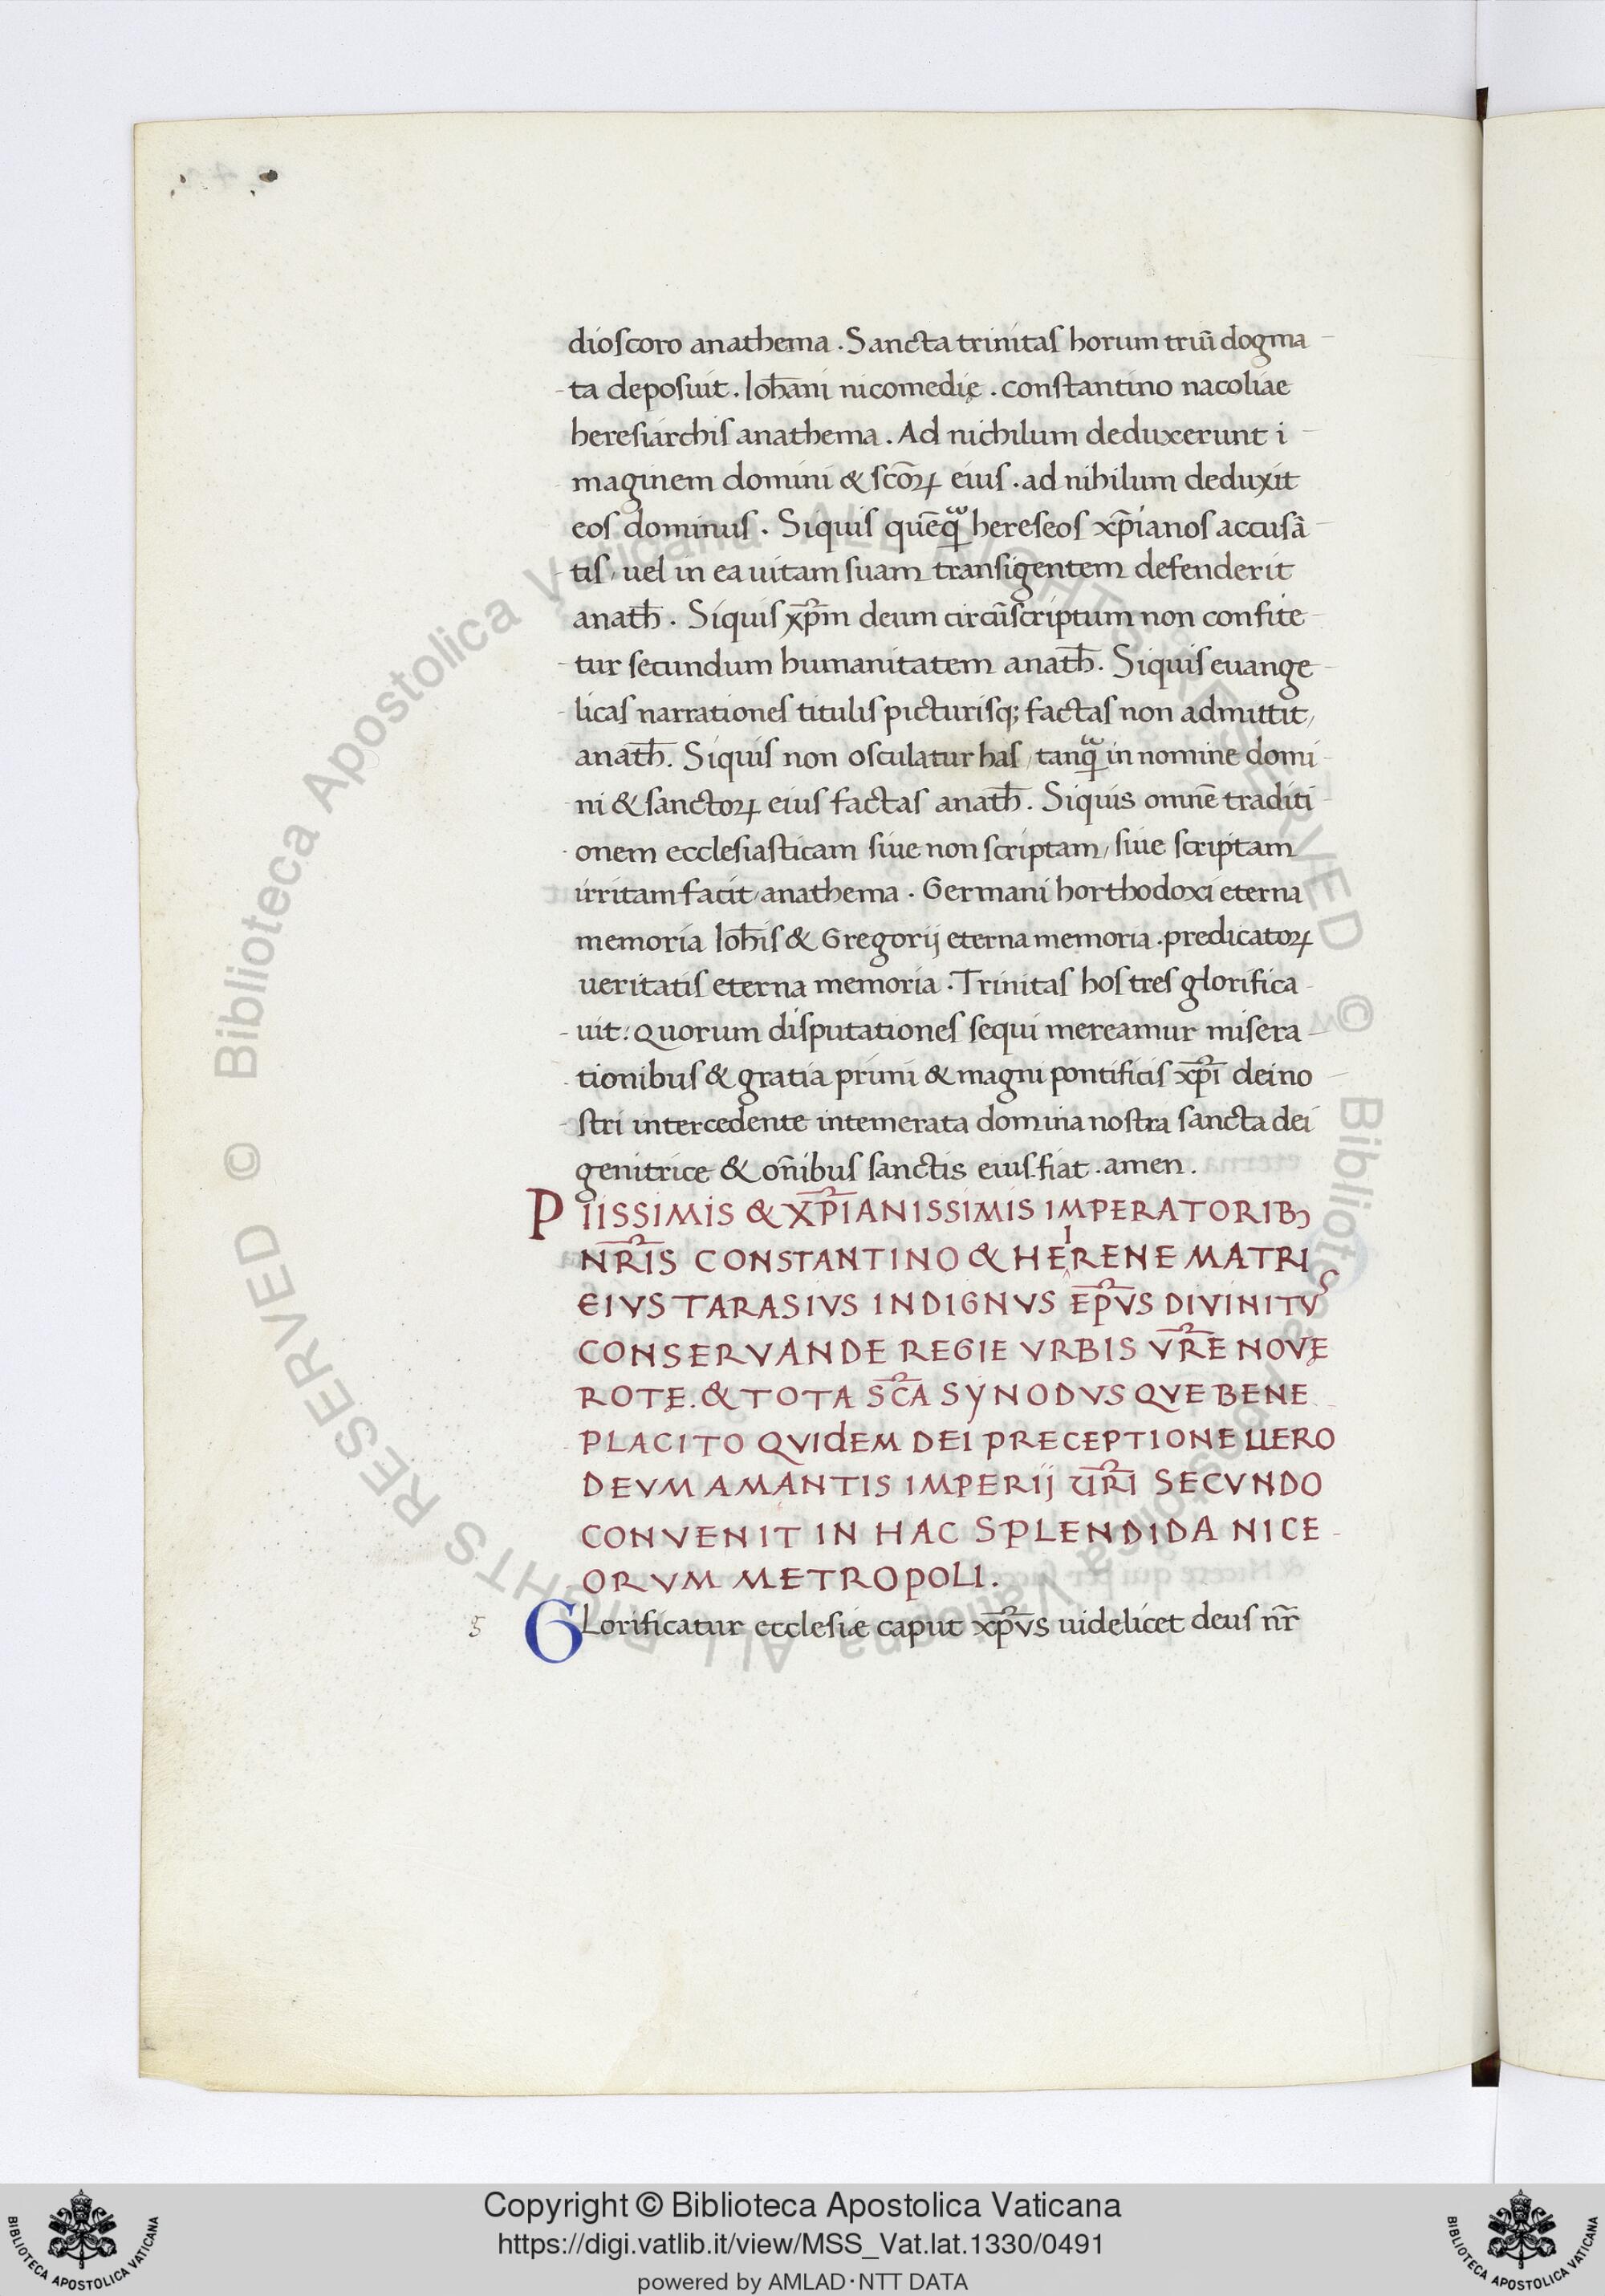 dioscoro anathema . Sancta trinitas horum triū dogma
ta deposuit . Ioh̄ani nicomedię . constantino nacoliae
heresiarchis anathema . Ad nichilum deduxerunt i
maginem domini & scōꝝ eius . ad nihilum deduxit
eos dominus . Siquis quēqͣ hereseos xp̄ianos accusā
tis, uel in ea uitam suam transigentem defenderit
anath̄ . Siquis xp̄m deum circūscriptum non confite
tur secundum humanitatem anath̄ . Siquis euange
licas narrationes titulis picturisq; factas non admittit,
anath̄ . Siquis non osculatur has, tanqͣ in nomine domi
ni & sanctoꝝ eius factas anath̄ . Siquis omnē traditi
onem ecclesiasticam siue non scriptam, siue scriptam
irritam facit, anathema . Germani horthodoxi eterna
memoria Ioh̄is & Gregorij eterna memoria . predicatoꝝ
ueritatis eterna memoria . Trinitas hos tres glorifica
uit : Quorum disputationes sequi mereamur misera
tionibus & gratia primi & magni pontificis xp̄i dei no
stri intercedente intemerata domina nostra sancta dei
genitrice & on̄ibus sanctis eius . fiat . amen .
PIISSIMIS & XP̄IANISSIMIS IMPERATORIBꝫ
NR̄IS CONSTANTINO & HEIRENE MATRI
EIVS TARASIVS INDIGNVS EP̄VS DIVINITVS
CONSERVANDE REGIE VRBIS VR̄E NOVĘ
ROTĘ . & TOTA SC̄A SYNODVS QVE BENE
PLACITO QVIDEM DEI PRECEPTIONE UERO
DEVM AMANTIS IMPERIJ UR̄I SECVNDO
CONVENIT IN HAC SPLENDIDA NICE
ORVM METROPOLI .
g GLorificatur ecclesiæ caput xp̄vs uidelicet deus nr̄
© Biblioteca Apostolica Vaticana ALL RIGHTS RESERVED © Biblioteca Apostolica Vaticana ALL RIGHTS RESERVED
Copyright © Biblioteca Apostolica Vaticana
https://digi.vatlib.it/view/MSS_Vat.lat.1330/0491
powered by AMLAD·NTT DATA
BIBLIOTECA APOSTOLICA VATICANA
BIBLIOTECA APOSTOLICA VATICANA